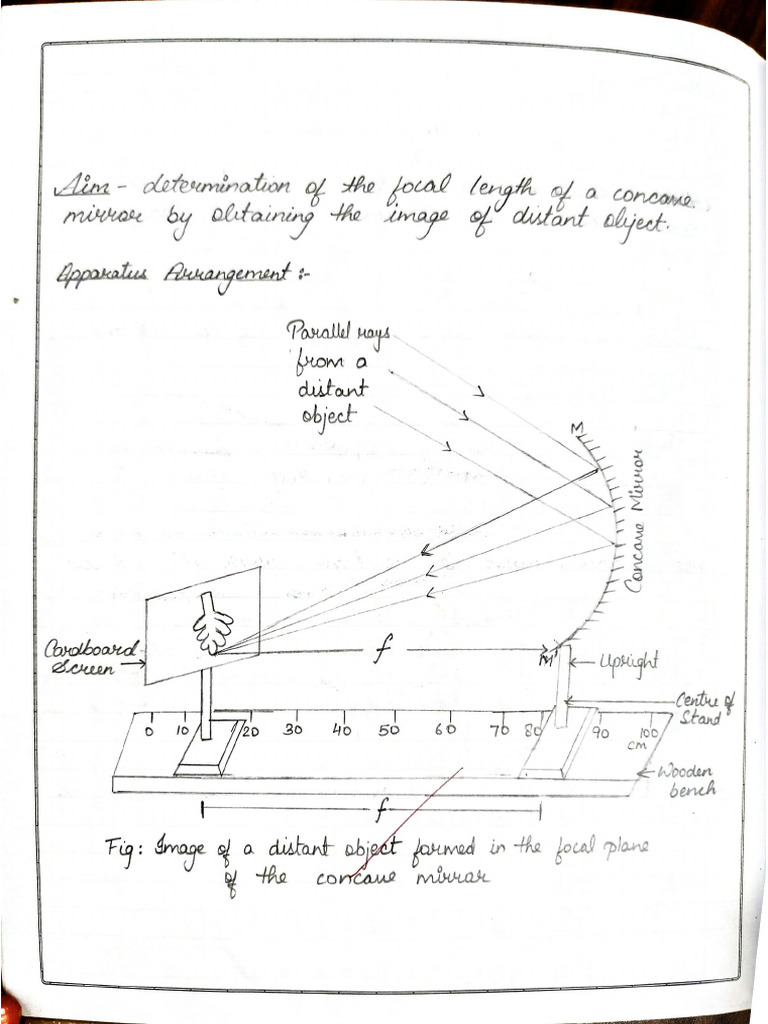 Aim - determination of the focal length of a concave
mirror by obtaining the image of distant object.
Apparatus Arrangement :-
Parallel rays
from a
distant
object
M
Concave Mirror
Cardboard
Screen
f
M'
Upright
Centre of
Stand
0 10 20 30 40 50 60 70 80 90 100
cm
Wooden
bench
f
Fig: Image of a distant object formed in the focal plane
of the concave mirror